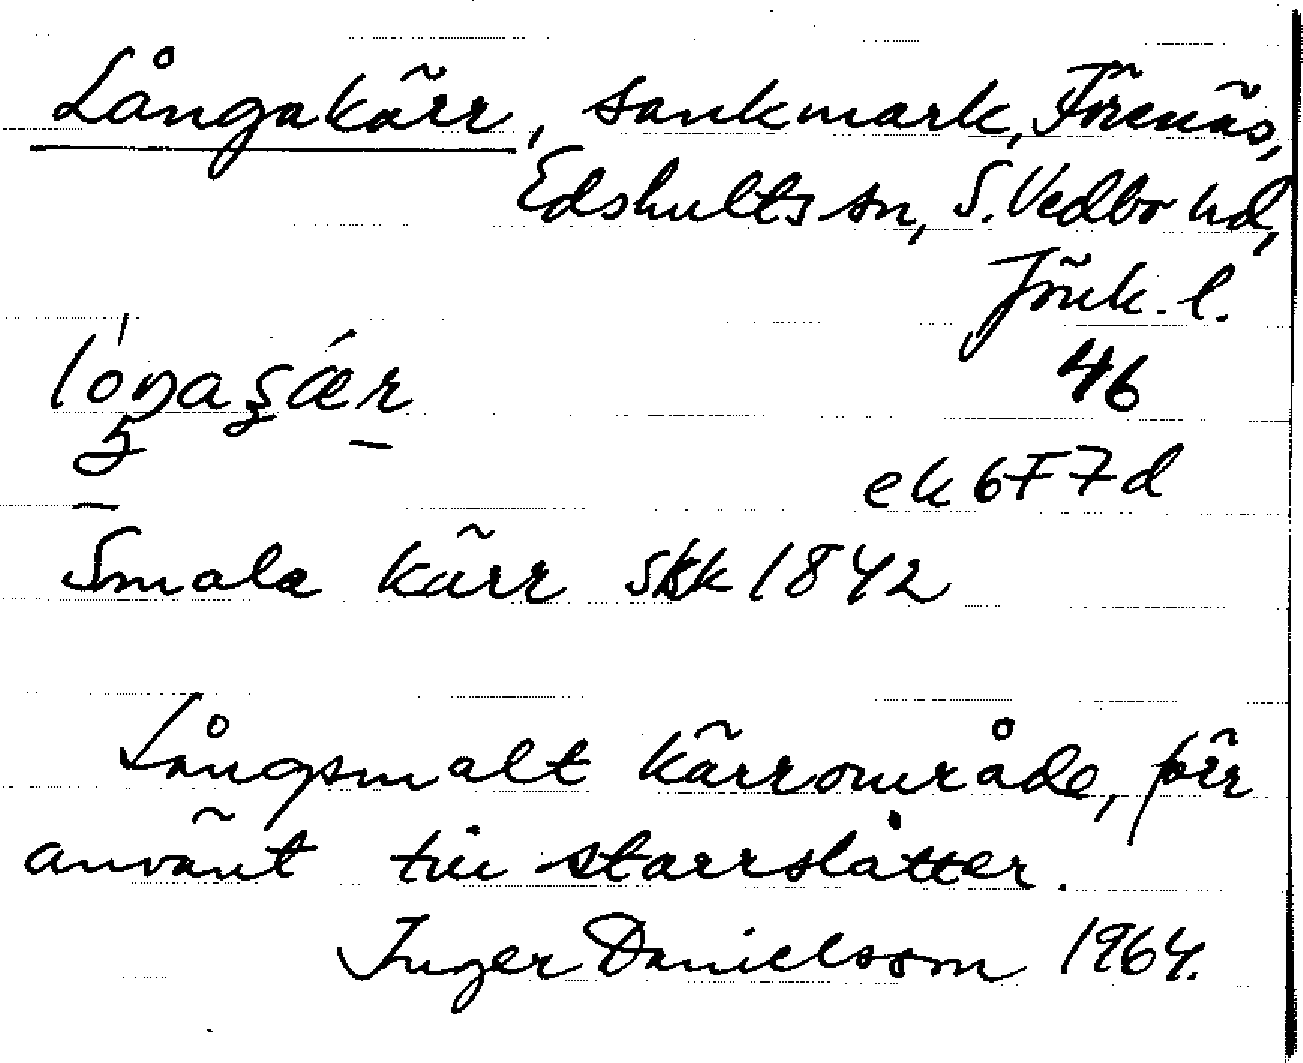 Långakärr, sankmark, Förenäs,
Edshults sn, S. Vedbo hd,
Jönk. l.
46
ek 6F7d
Smala kärr skk 1842
Långsmalt kärrområde, förr
använt till starrslåtter.
Inger Danielsson 1964.